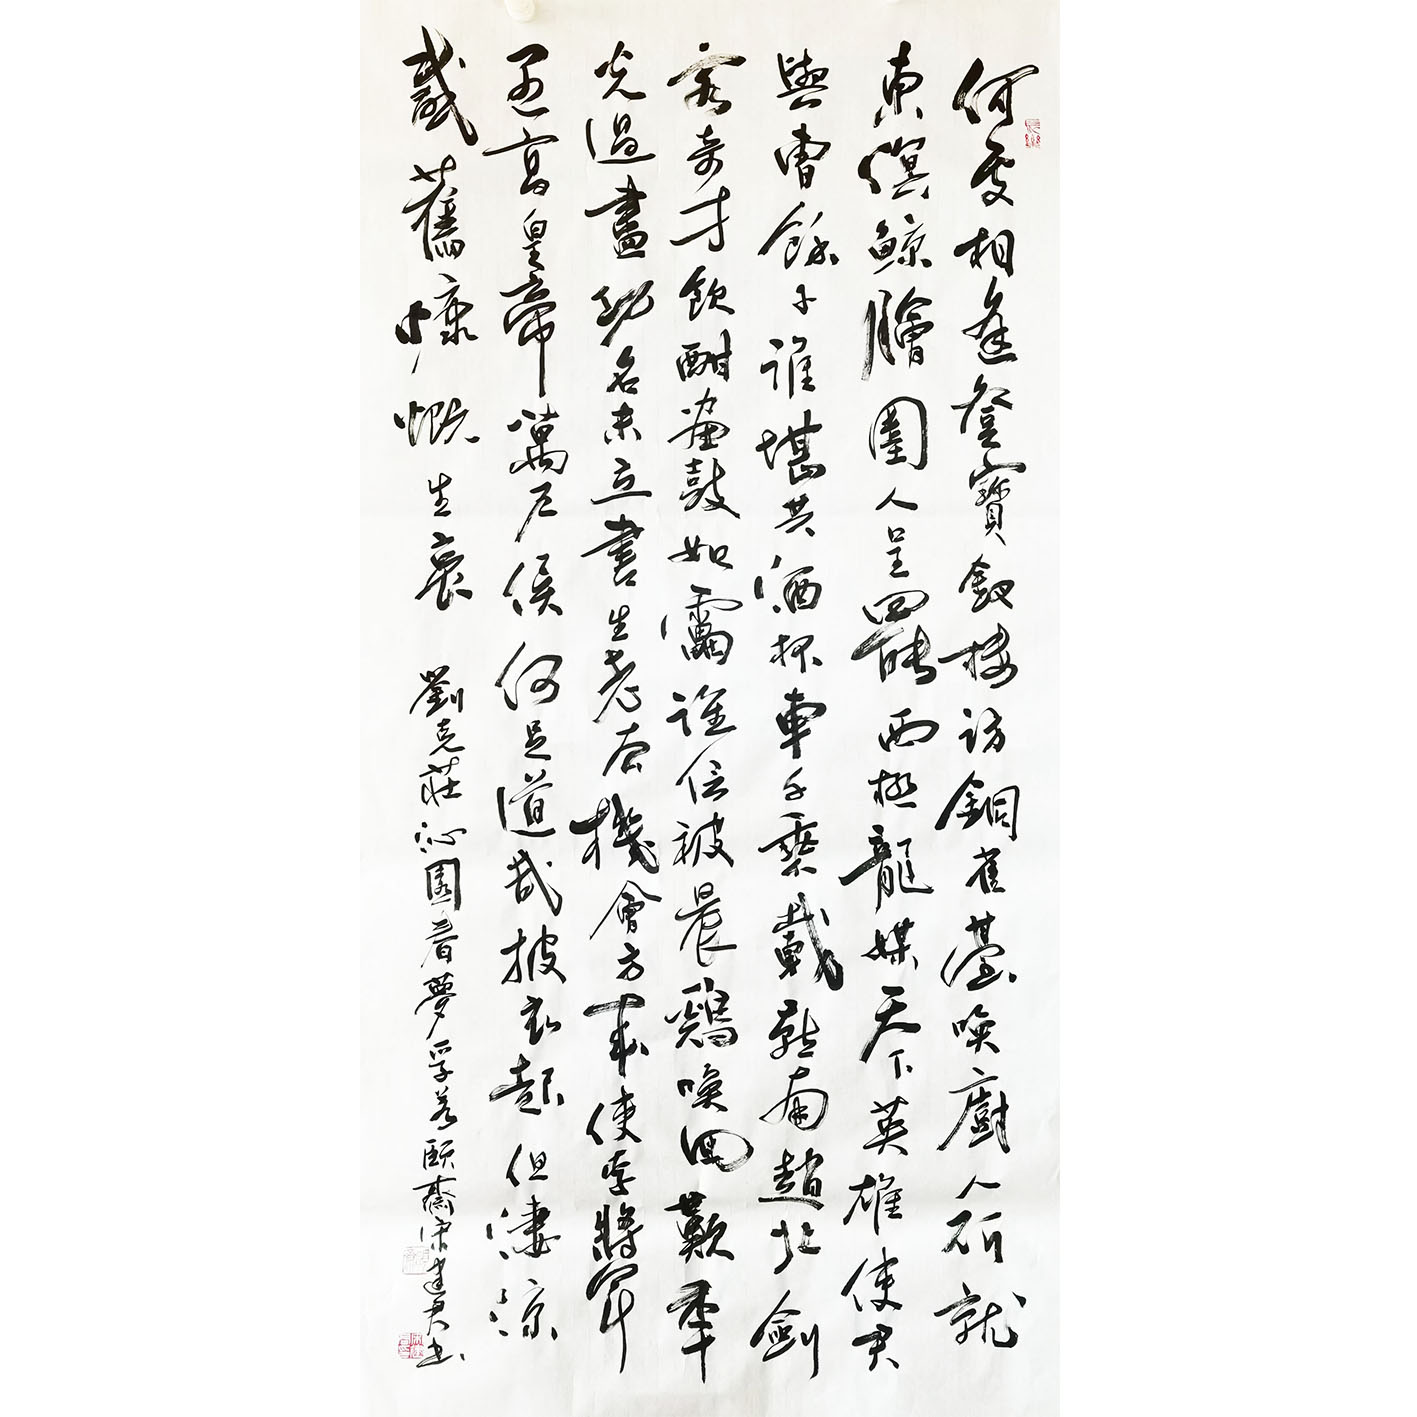 何處相逢登寶釵樓訪銅雀臺喚廚人斫就
東溟鯨膾圉人呈罷西極龍媒天下英雄使君
與曹餘子誰堪共酒杯車千乘載燕南趙北劍
客奇才飲酣畫鼓如雷誰信被晨鷄喚回歎年
光過盡功名未立書生老去機會方來使李將軍
遇高皇帝萬戶侯何足道哉披衣起但凄涼
感舊慷慨生哀 劉克莊沁園春夢孚若頤齋宋建君书